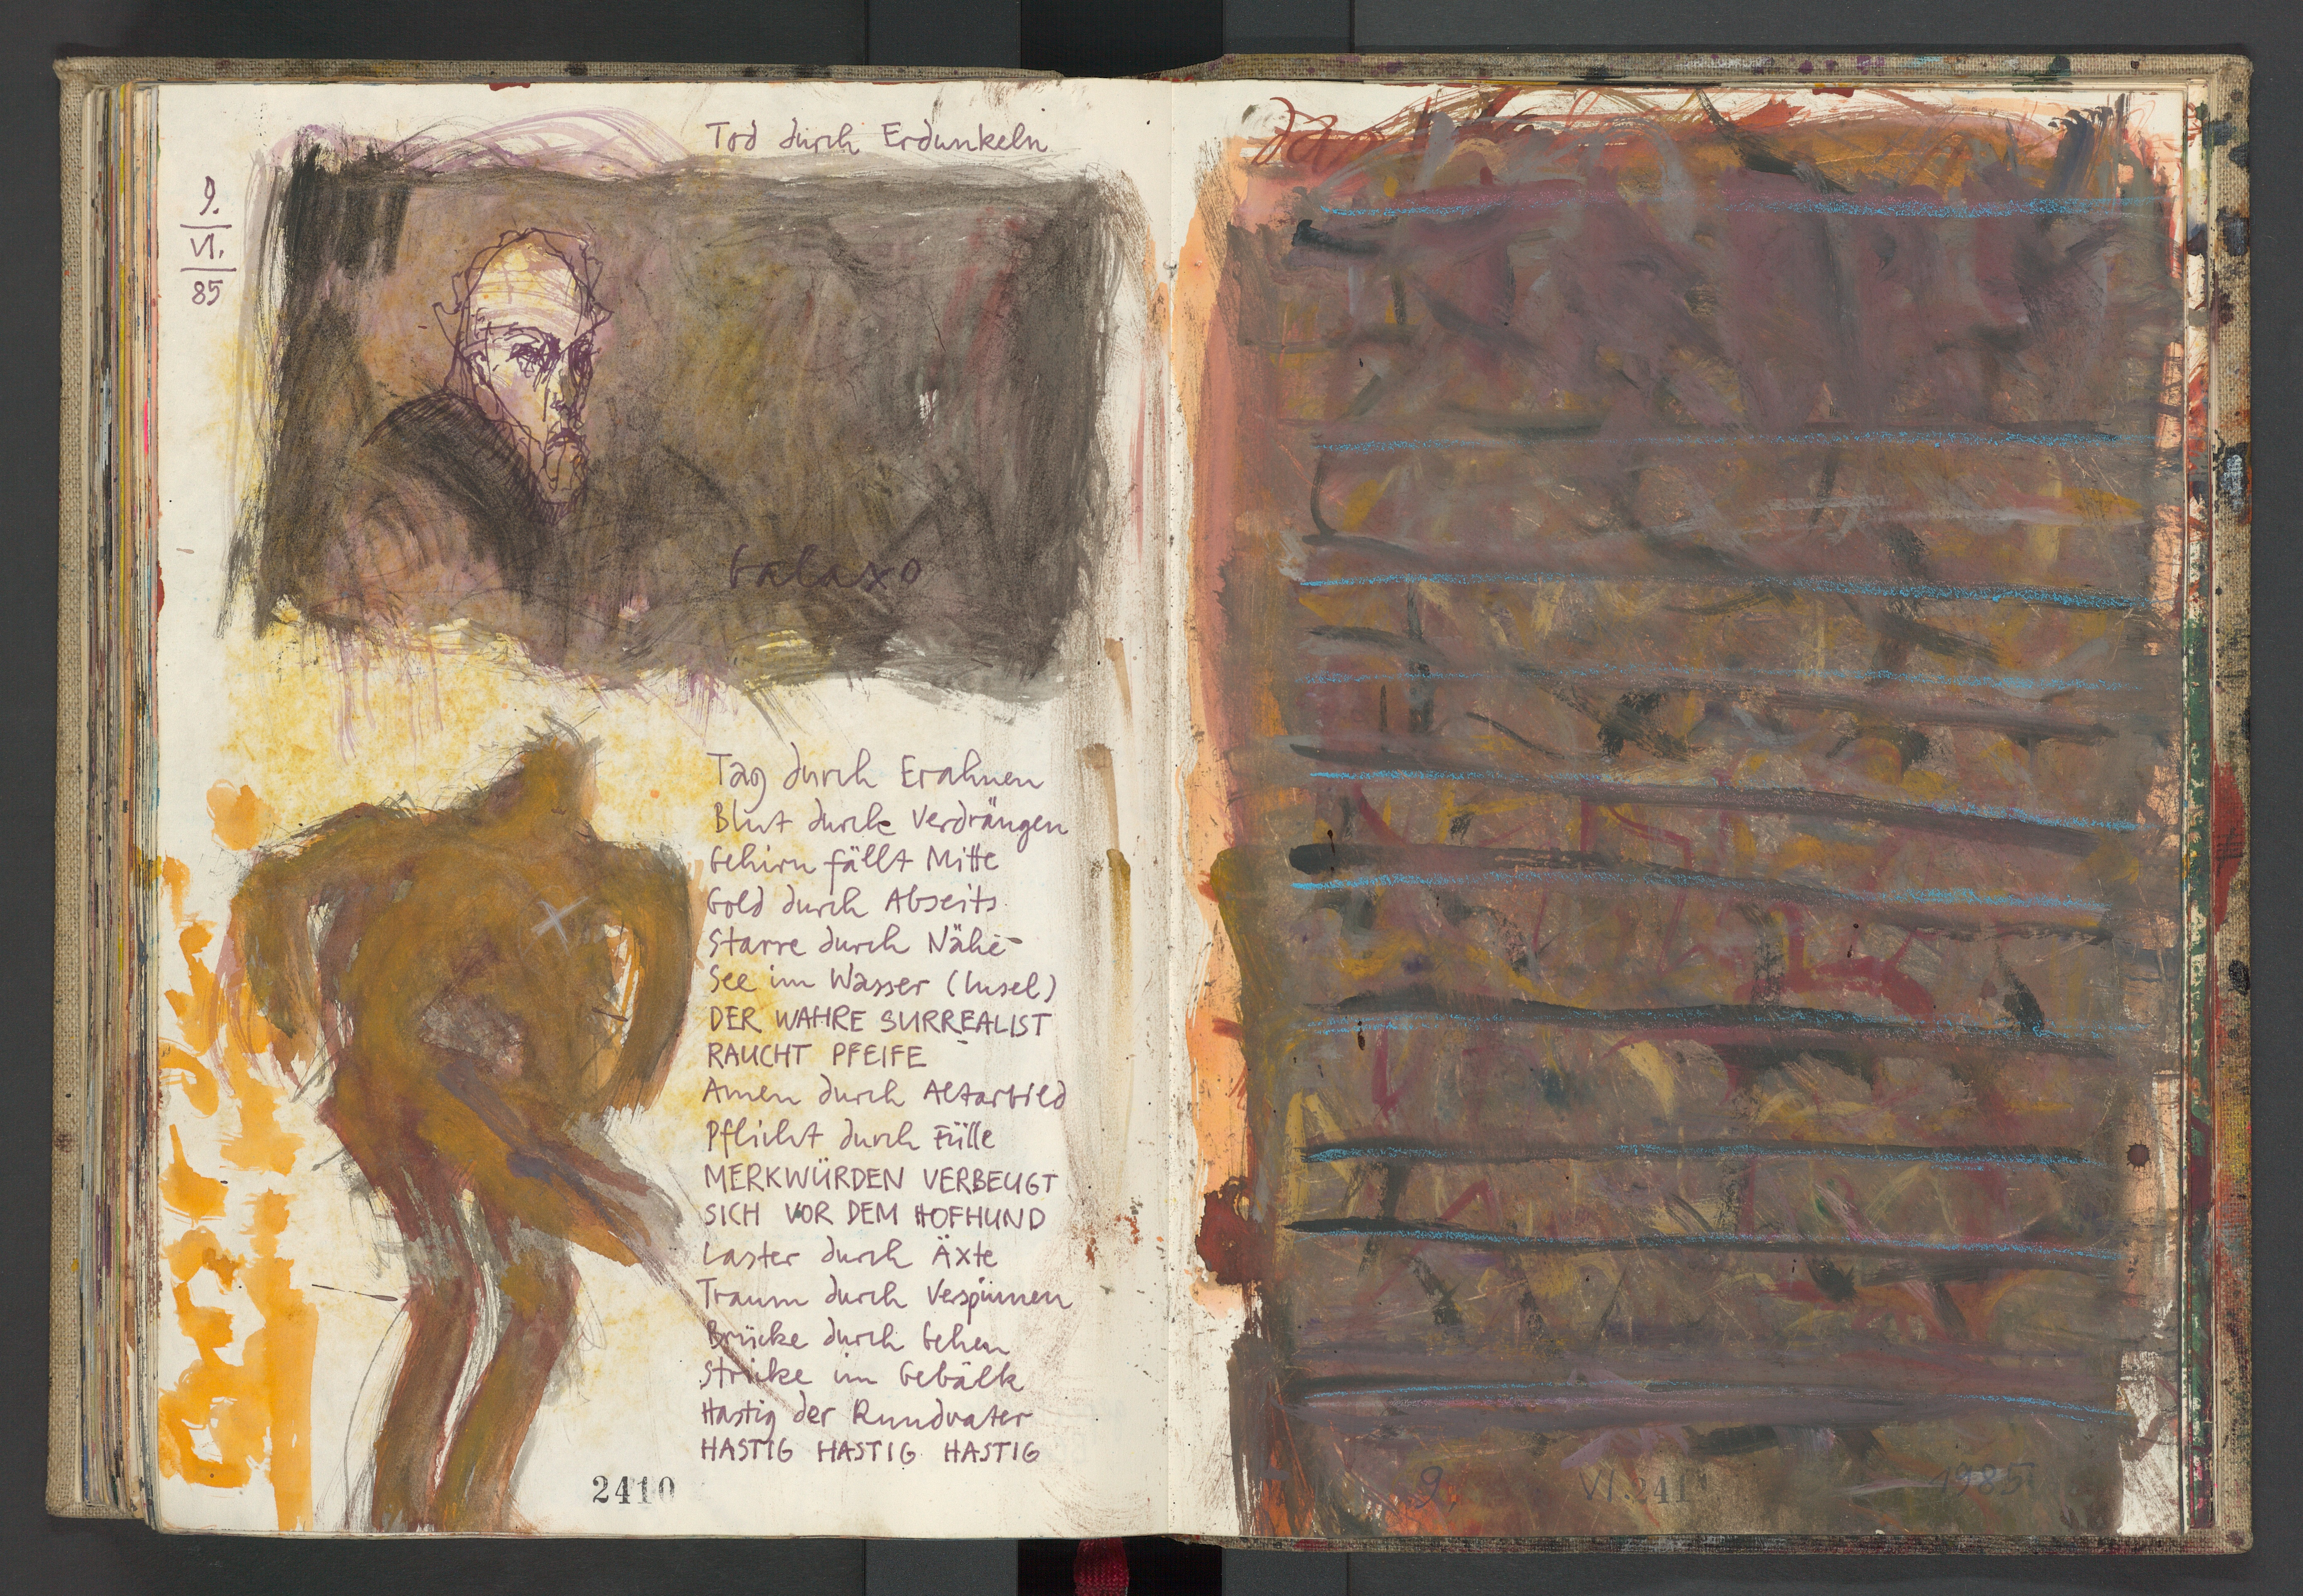 Tod durch Erdunkeln
9.
VI.
85
Galaxo
Tag durch Erahnen
Blut durch Verdrängen
Gehirn fällt Mitte
Gold durch Abseits
Starre durch Nähe
See im Wasser (Insel)
DER WAHRE SURREALIST
RAUCHT PFEIFE
Amen durch Altarbild
Pflicht durch Fülle
MERKWÜRDEN VERBEUGT
SICH VOR DEM HOFHUND
Laster durch Äxte
Traum durch Verspinnen
Brücke durch Gehen
Stricke im Gebälk
Hastig der Rundvater
HASTIG HASTIG HASTIG
2410
9. VI. 2411 1985